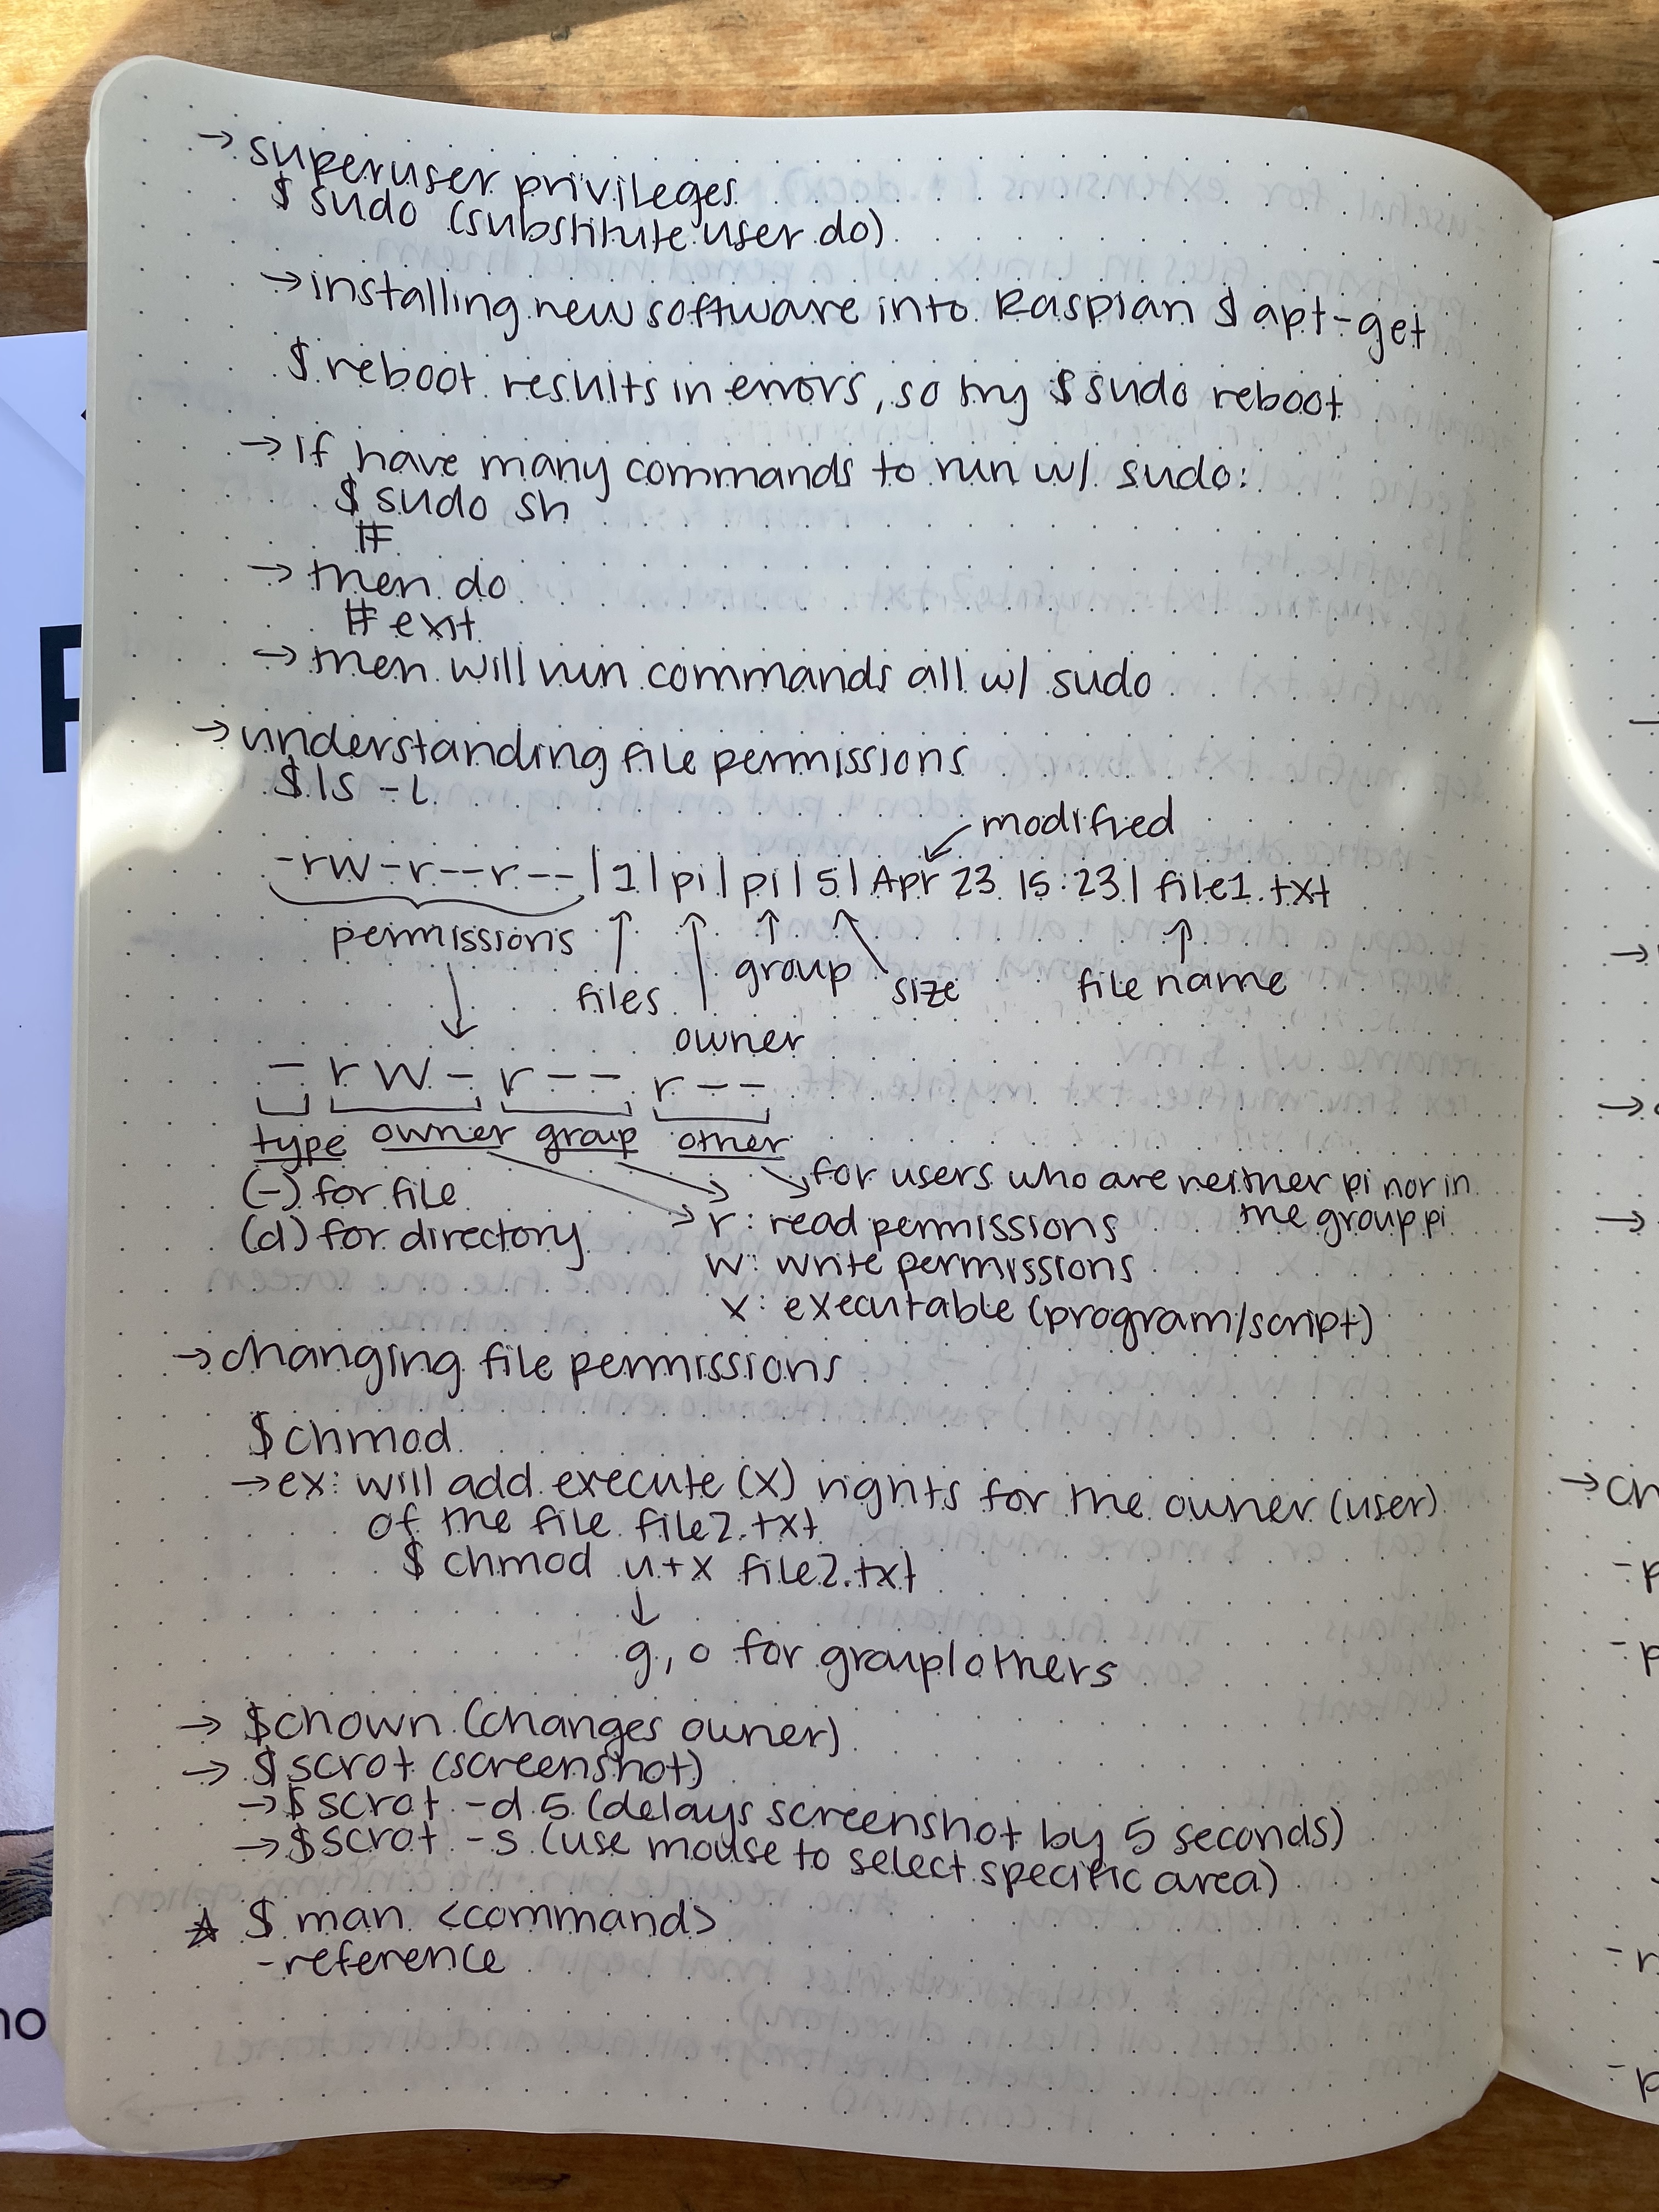 → superuser privileges
$ sudo (substitute user do)
→ installing new software into Raspian $ apt-get
$ reboot results in errors, so try $ sudo reboot
→ If have many commands to run w/ sudo:
$ sudo sh
#
→ then do
# exit
→ then will run commands all w/ sudo
→ understanding file permissions
$ ls -l
modified
-rw-r--r-- | 1 | pi | pi | 5 | Apr 23 15:23 | file1.txt
permissions
files
group
size
file name
owner
- rw- r-- r--
type owner group other
(-) for file
(d) for directory
for users who are neither pi nor in
the group pi
r: read permissions
w: write permissions
x: executable (program/script)
→ changing file permissions
$ chmod
→ ex: will add execute (x) rights for the owner (user)
of the file file2.txt
$ chmod u+x file2.txt
↓
g, o for group/others
→ $ chown (changes owner)
→ $ scrot (screenshot)
→ $ scrot -d 5 (delays screenshot by 5 seconds)
→ $ scrot -s (use mouse to select specific area)
☆ $ man <command>
- reference